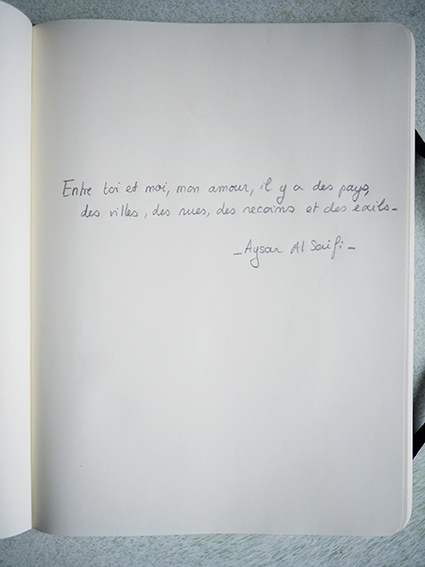 Entre toi et moi, mon amour, il y a des pays,
des villes, des rues, des recoins et des exils -
- Aysar Al Saifi -